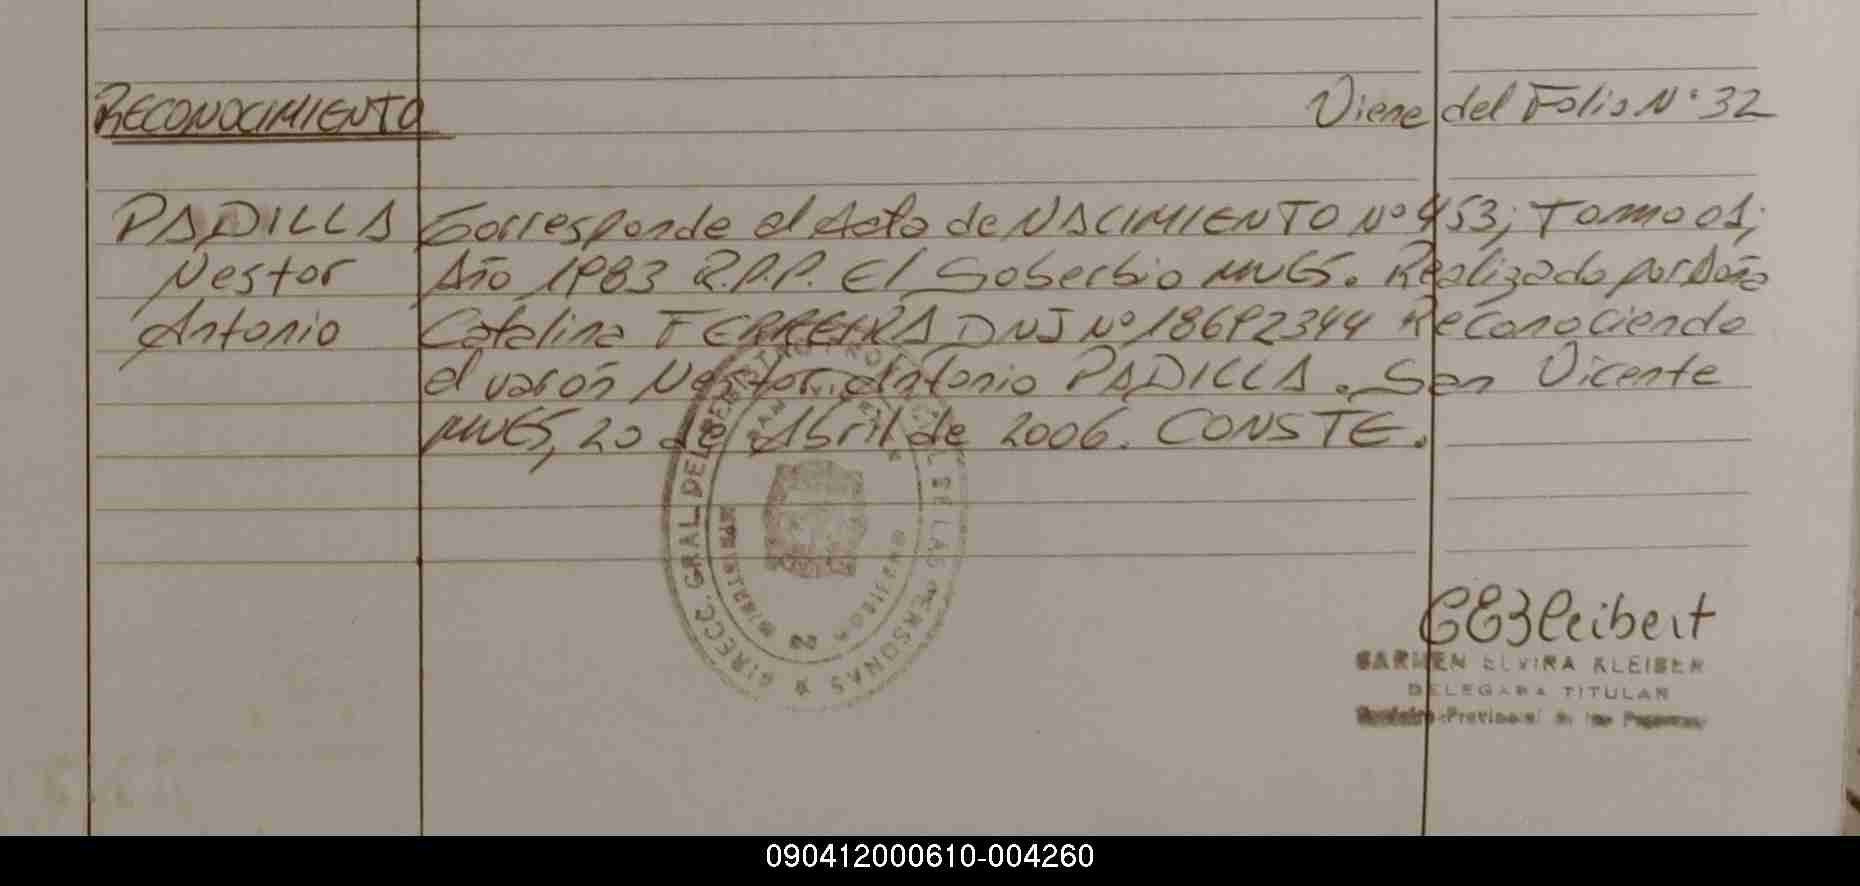 RECONOCIMIENTO
Viene del Folio N° 32
PADILLA
Nestor
Antonio
Corresponde al Acta de NACIMIENTO Nº 453; Tomo 01;
Año 1983 R.P.P. El Soberbio MNES. Realizado por Doña
Catalina FERREIRA DNI Nº 18692344 Reconociendo
al varón Nestor Antonio PADILLA. San Vicente
MNES, 20 de Abril de 2006. CONSTE.
DIRECC. GRAL. DEL REGISTRO PROVINCIAL DE LAS PERSONAS
MISIONES
CARMEN ELVIRA KLEIBER
DELEGADA TITULAR
Registro Provincial de las Personas
090412000610-004260